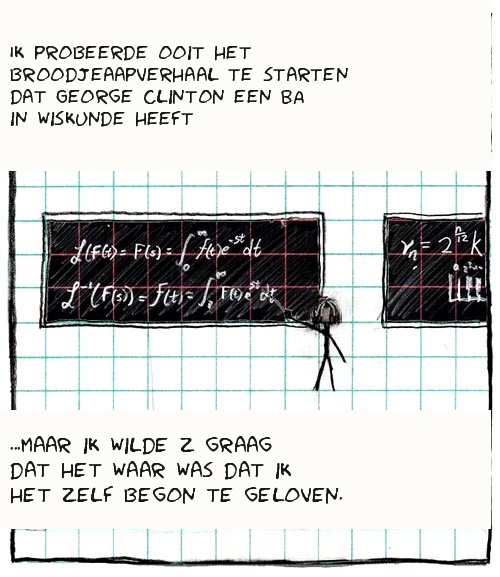 IK PROBEERDE OOIT HET
BROODJEAAPVERHAAL TE STARTEN
DAT GEORGE CLINTON EEN BA
IN WISKUNDE HEEFT
ℒ(F(t) = F(s) = ∫₀^∞ f(t)e^-st dt
ℒ⁻¹(F(s)) = f(t) =
γn = 2^n/12 k
...MAAR IK WILDE Z GRAAG
DAT HET WAAR WAS DAT IK
HET ZELF BEGON TE GELOVEN.